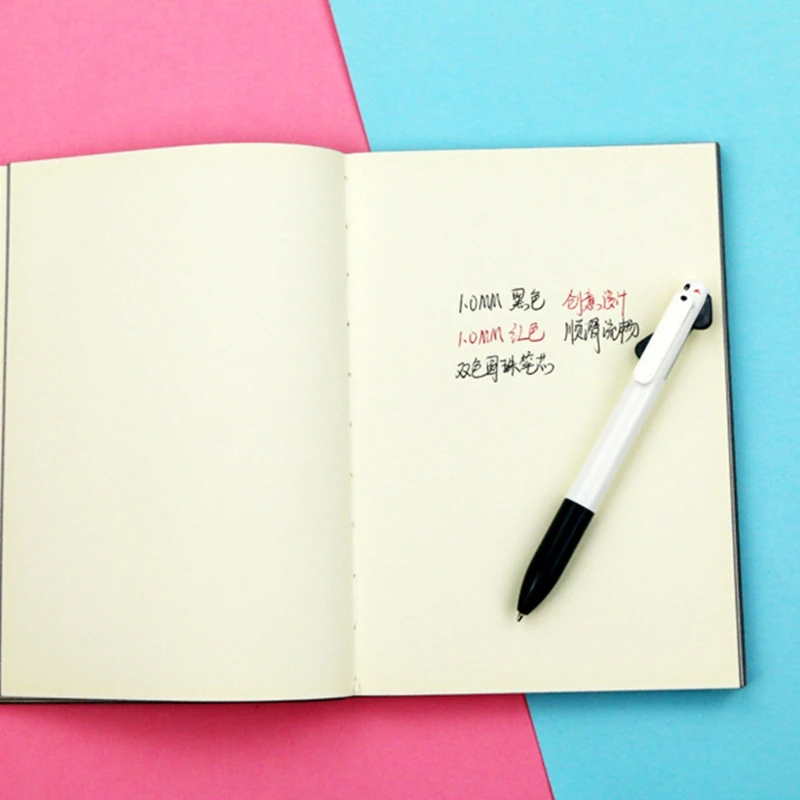 1.0MM 黑色 创意设计
1.0MM 红色 顺滑流畅
双色圆珠笔芯